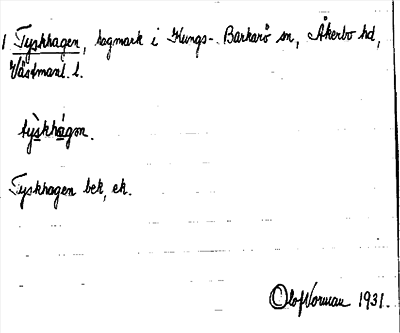 1 Tyskhagen, hagmark i Kungs-Barkarö sn, Åkerbo hd,
Västmanl. l.
tỳskhágən.
Tyskhagen bek, ek.
Olof Norman 1931.